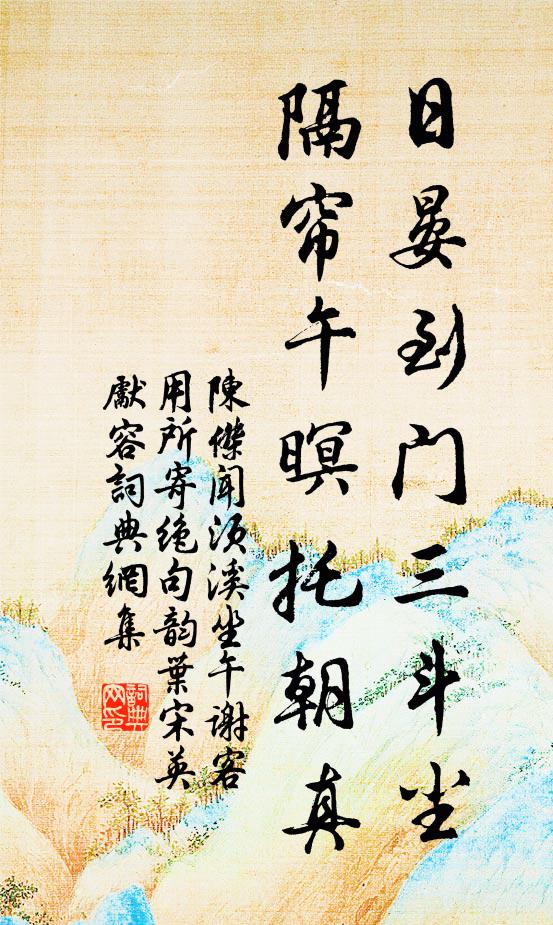 日晏到门三斗尘
隔帘午暝托朝真
陳傑闻须溪坐午谢客
用所寄绝句韵葉宋英
獻容詞典網集
詞典网印